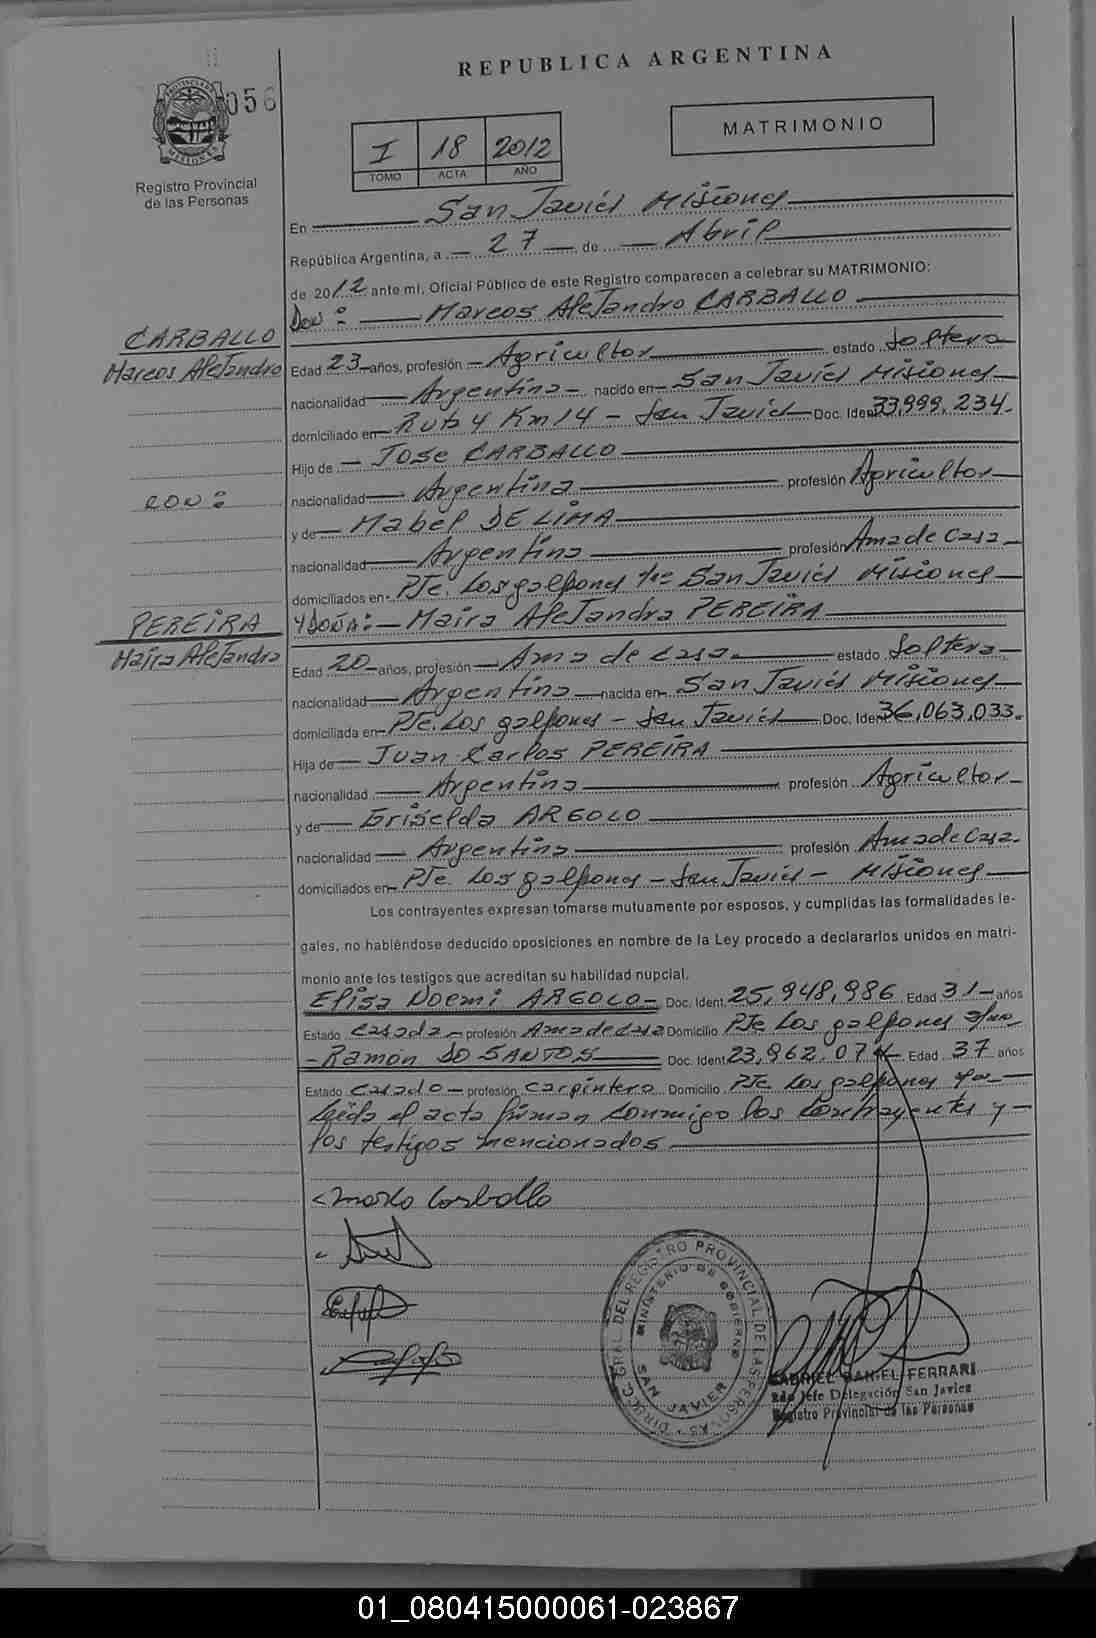 REPUBLICA ARGENTINA
056
PROVINCIA DE MISIONES
Registro Provincial
de las Personas
MATRIMONIO
I 18 2012
TOMO ACTA AÑO
En San Javier Misiones
República Argentina, a 27 de Abril
de 2012 ante mi, Oficial Público de este Registro comparecen a celebrar su MATRIMONIO:
Don: Marcos Alejandro CARBALLO
CARBALLO
Marcos Alejandro
Edad 23 años, profesión Agricultor estado Soltero
nacionalidad Argentina nacido en San Javier Misiones
domiciliado en Ruta 4 Km 14 - San Javier Doc. Ident 33,999,234.
Hijo de Jose CARBALLO
con:
nacionalidad Argentina profesión Agricultor
y de Mabel DE LIMA
nacionalidad Argentina profesión Ama de Casa
domiciliados en Pje. Los galpones San Javier Misiones
PEREIRA
Maira Alejandra
Y DOÑA: Maira Alejandra PEREIRA
Edad 20 años, profesión Ama de casa estado Soltera
nacionalidad Argentina nacida en San Javier Misiones
domiciliada en Pje. Los galpones - San Javier Doc. Ident 36,063,033.
Hija de Juan Carlos PEREIRA
nacionalidad Argentina profesión Agricultor
y de Griselda ARGOLO
nacionalidad Argentina profesión Ama de Casa
domiciliados en Pje. Los galpones - San Javier - Misiones
Los contrayentes expresan tomarse mutuamente por esposos, y cumplidas las formalidades le-
gales, no habiéndose deducido oposiciones en nombre de la Ley procedo a declararlos unidos en matri-
monio ante los testigos que acreditan su habilidad nupcial.
Elisa Noemi ARGOLO Doc. Ident. 25,948,986 Edad 31 años
Estado Casada profesión Ama de casa Domicilio Pje Los galpones
Ramón DO SANTOS Doc. Ident 23,962,074 Edad 37 años
Estado Casado profesión Carpintero Domicilio Pje Los galpones
Leída el acta firman conmigo los contrayentes y
los testigos mencionados.
Carballo
DIRECC. GRAL. DEL REGISTRO PROVINCIAL DE LAS PERSONAS
MINISTERIO DE GOBIERNO
SAN JAVIER
GABRIEL DANIEL FERRARI
2do Jefe Delegación San Javier
Registro Provincial de las Personas
01_080415000061-023867